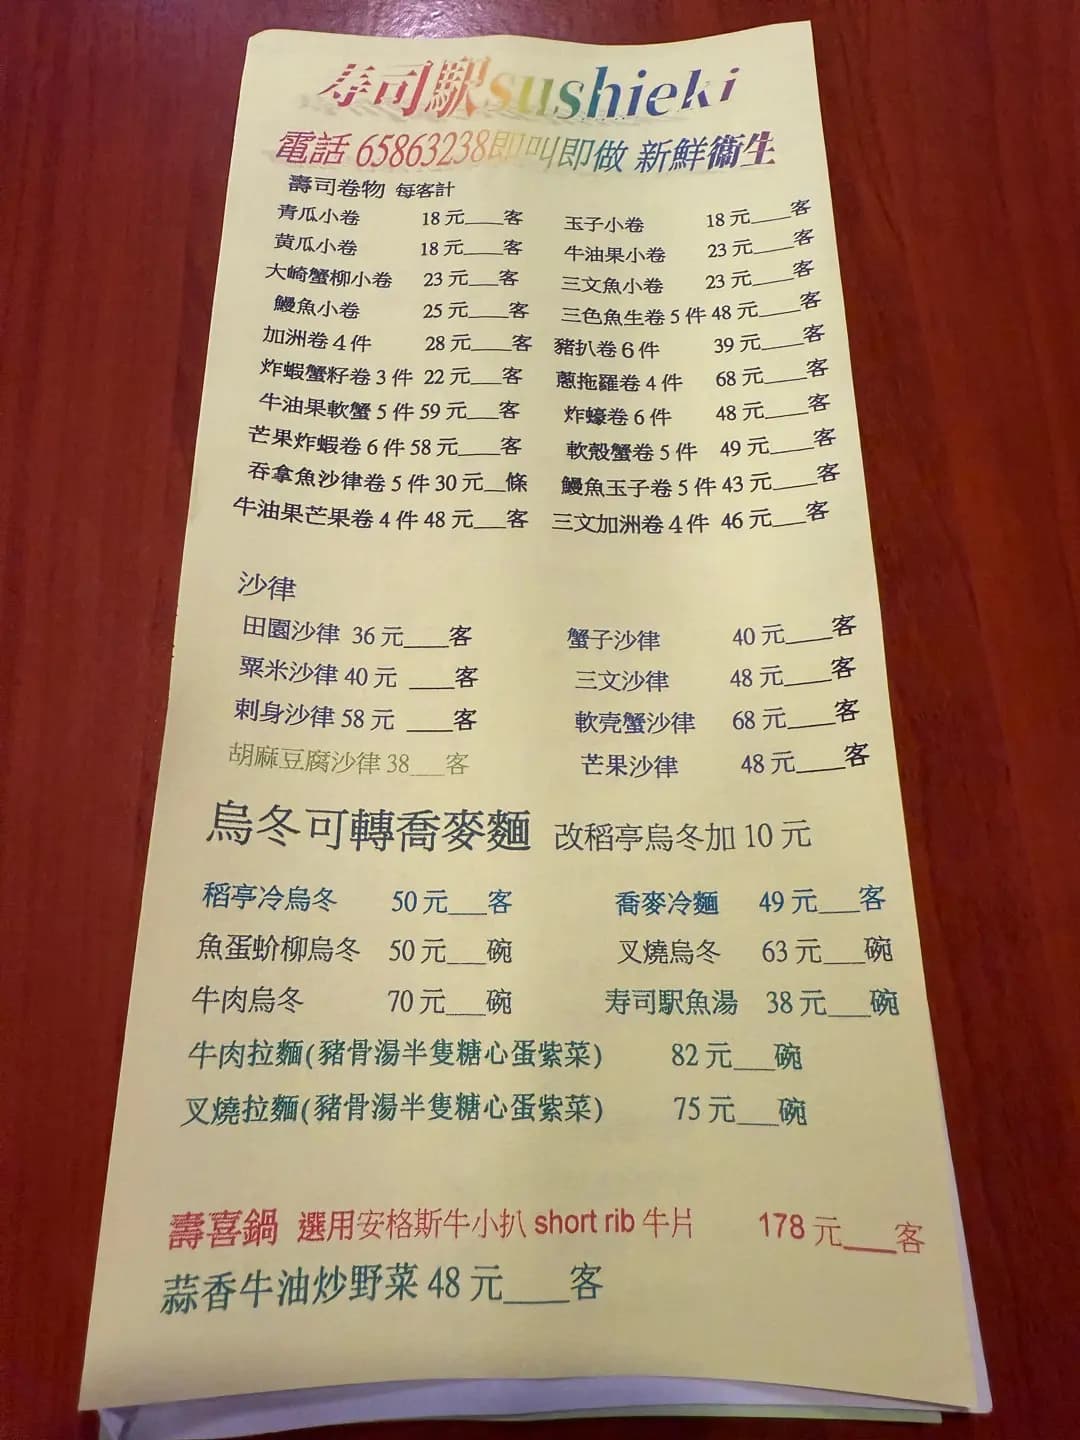 寿司駅sushieki
電話 65863238即叫即做 新鮮衞生
壽司卷物 每客計
青瓜小卷 18 元____客 玉子小卷 18 元____客
黄瓜小卷 18 元____客 牛油果小卷 23 元____客
大崎蟹柳小卷 23 元___客 三文魚小卷 23 元____客
鰻魚小卷 25 元____客 三色魚生卷 5 件 48 元____客
加洲卷 4 件 28 元____客 豬扒卷 6 件 39 元____客
炸蝦蟹籽卷 3 件 22 元___客 蔥拖羅卷 4 件 68 元____客
牛油果軟蟹 5 件 59 元___客 炸蠔卷 6 件 48 元____客
芒果炸蝦卷 6 件 58 元____客 軟殼蟹卷 5 件 49 元____客
吞拿魚沙律卷 5 件 30 元__條 鰻魚玉子卷 5 件 43 元____客
牛油果芒果卷 4 件 48 元___客 三文加洲卷 4 件 46 元___客
沙律
田園沙律 36 元____客 蟹子沙律 40 元____客
粟米沙律 40 元 ____客 三文沙律 48 元____客
刺身沙律 58 元 ____客 軟壳蟹沙律 68 元____客
胡麻豆腐沙律 38___客 芒果沙律 48 元____客
烏冬可轉喬麥麵 改稻亭烏冬加 10 元
稻亭冷烏冬 50 元___客 喬麥冷麵 49 元___客
魚蛋蚧柳烏冬 50 元___碗 叉燒烏冬 63 元___碗
牛肉烏冬 70 元___碗 寿司駅魚湯 38 元___碗
牛肉拉麵(豬骨湯半隻糖心蛋紫菜) 82 元___碗
叉燒拉麵(豬骨湯半隻糖心蛋紫菜) 75 元___碗
壽喜鍋 選用安格斯牛小扒 short rib 牛片 178 元___客
蒜香牛油炒野菜 48 元____客